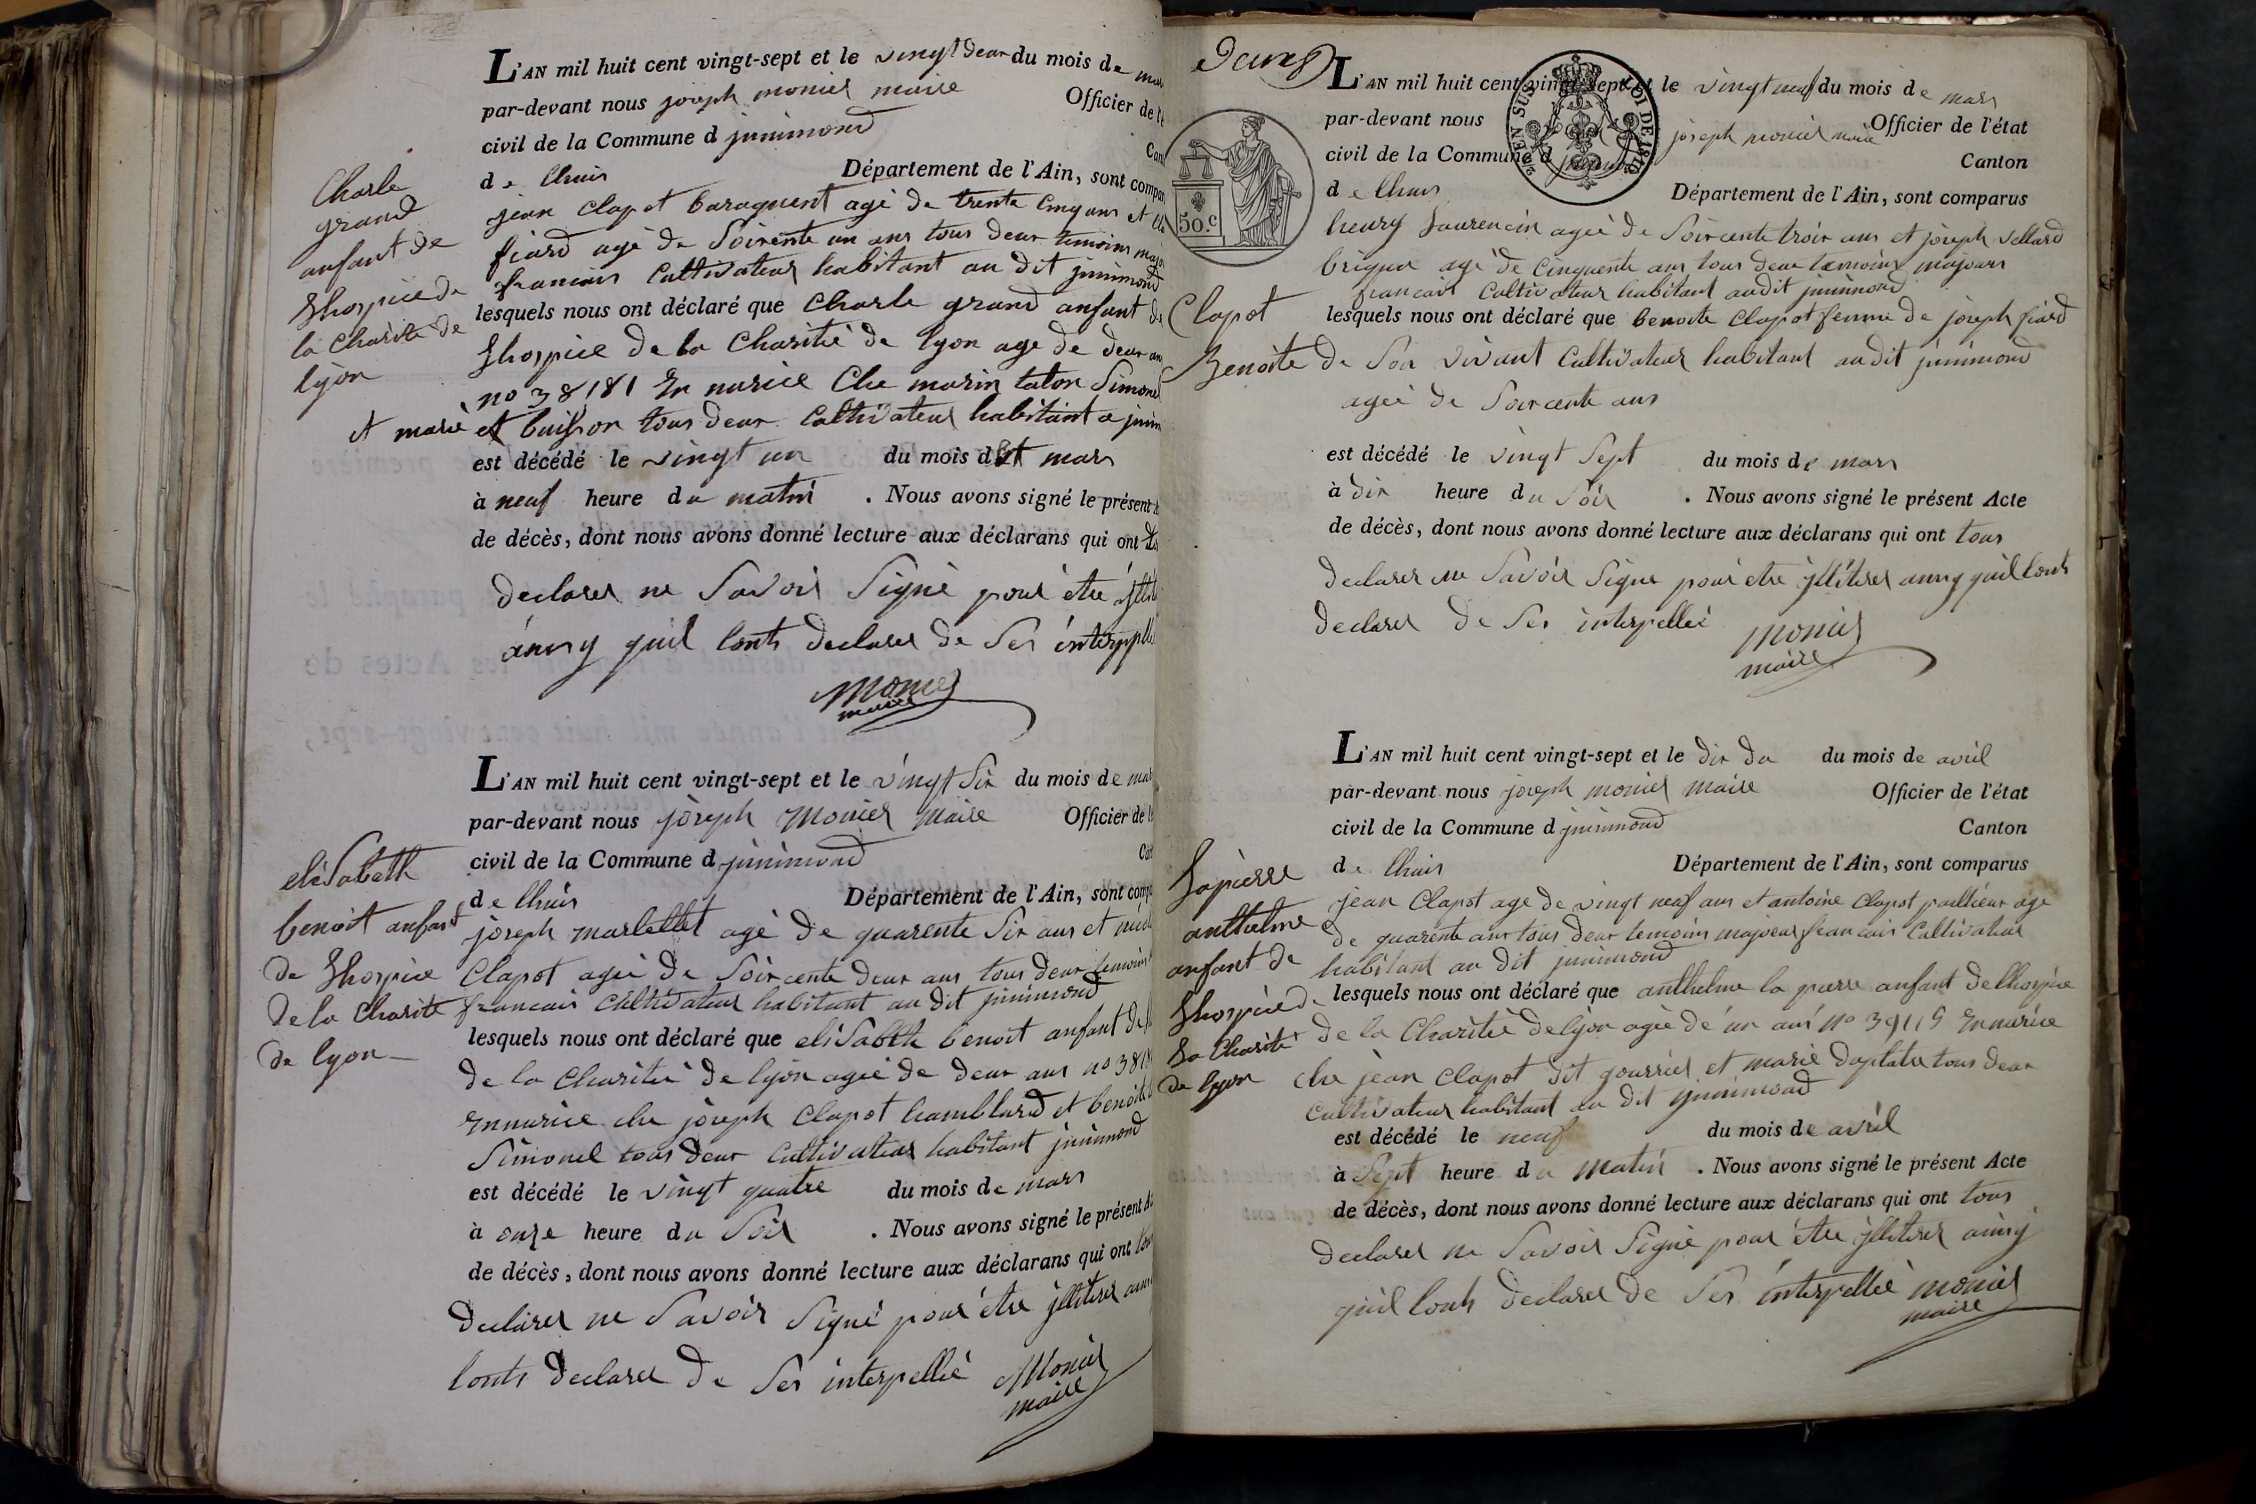 L'AN mil huit cent vingt-sept et le vingt deux du mois de mars
par-devant nous joseph monier maire Officier de l'é
civil de la Commune d jninimond Can
de lhuis Département de l'Ain, sont compar
jean clapot baraquent agé de trente cinq ans et
fiard agé de Soixente un ans tous deux temoins majo
francais Cultivateur habitant au dit jninimond
lesquels nous ont déclaré que Charle grand anfant de
Lhospice de la Charité de lyon age de deux ans
no 38181 En nurice Che marin taton Simonel
et marie buisson tous deux Cultivateur habitant a jnini
est décédé le vingt un du mois de mars
à neuf heure du matin . Nous avons signé le présent A
de décès, dont nous avons donné lecture aux déclarans qui ont
declarer ne Savoir Signé pour étre jlliter
áinsy quil lonts declarer de Ses interpellé
Monier
maire
Charle
grand
anfant de
Lhospice de
la Charité de
lyon
L'AN mil huit cent vingt-sept et le vingt Six du mois de mars
par-devant nous joseph Monier Maire Officier de l'
civil de la Commune d jninimond Can
de lhuis Département de l'Ain, sont compa
joseph marlettet agé de quarente Six ans et
Clapot agée de Soixcente deux ans tous deux temoins
francais Cultivateur habitant au dit jninimond
lesquels nous ont déclaré que eliSabth benoit anfant de
de la Charité de lyon agée de deux ans no 381
Ennurice che joseph Clapot hamblard et benoite
Simonel tous deux Cultivateur habitant jninimond
est décédé le vingt quatre du mois de mars
à onze heure du Soir . Nous avons signé le présent A
de décès, dont nous avons donné lecture aux déclarans qui ont tous
declarer ne Savoir Signé pour étre jlliterer
lonts declarer de Ses interpellé
Monier
maire
eliSabath
benoit anfant
de Lhospice
de la Charité
de lyon
Deux
L'AN mil huit cent vingt-sept et le vingt neuf du mois de mars
par-devant nous joseph monier maire Officier de l'état
civil de la Commune d Canton
de lhuis Département de l'Ain, sont comparus
50.c
henry Laurencin agée de Soixcente troix ans et joseph vettard
brigue agé de Cinquente ans tous deux temoins majeurs
francais Cultivateur habitant audit jninimond
lesquels nous ont déclaré que benoite Clapot femme de joseph fiard
de Son vivant Cultivateur habitant au dit jninimond
agée de Soixcente ans
est décédé le vingt Sept du mois de mars
à dix heure du Soir . Nous avons signé le présent Acte
de décès, dont nous avons donné lecture aux déclarans qui ont tous
declarer ne Savoir Signe pour etre jlliterer ainsy quil lonts
declarer de Ses interpellé
Monier
maire
Clapot
Benoite
L'AN mil huit cent vingt-sept et le dix du du mois de avril
par-devant nous joseph monier maire Officier de l'état
civil de la Commune d jninimond Canton
de lhuis Département de l'Ain, sont comparus
jean Clapot age de vingt neuf ans et antoine Clapot age
de quarente ans tous deux temoins majeur francais Cultivateur
habitant au dit jninimond
lesquels nous ont déclaré que anthelme la pierre anfant de lhospice
de la Charité de lyon agée de un ans no 39119 Ennurice
che jean Clapot dit gourrier et marie tous deux
Cultivateur habitant au dit jninimond
est décédé le neuf du mois de avril
à Sept heure du Matin . Nous avons signé le présent Acte
de décès, dont nous avons donné lecture aux déclarans qui ont tous
declarer ne Savoir Signé pour étre jlliterer ainsy
quil lonts declarer de Ses interpellé
monier
maire
Lapierre
anthelme
anfant de
Lhospice de
La Charité
de lyon